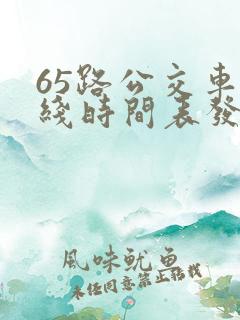 65路公交車
綫時間表發
風味魷魚
未經同意禁止轉載